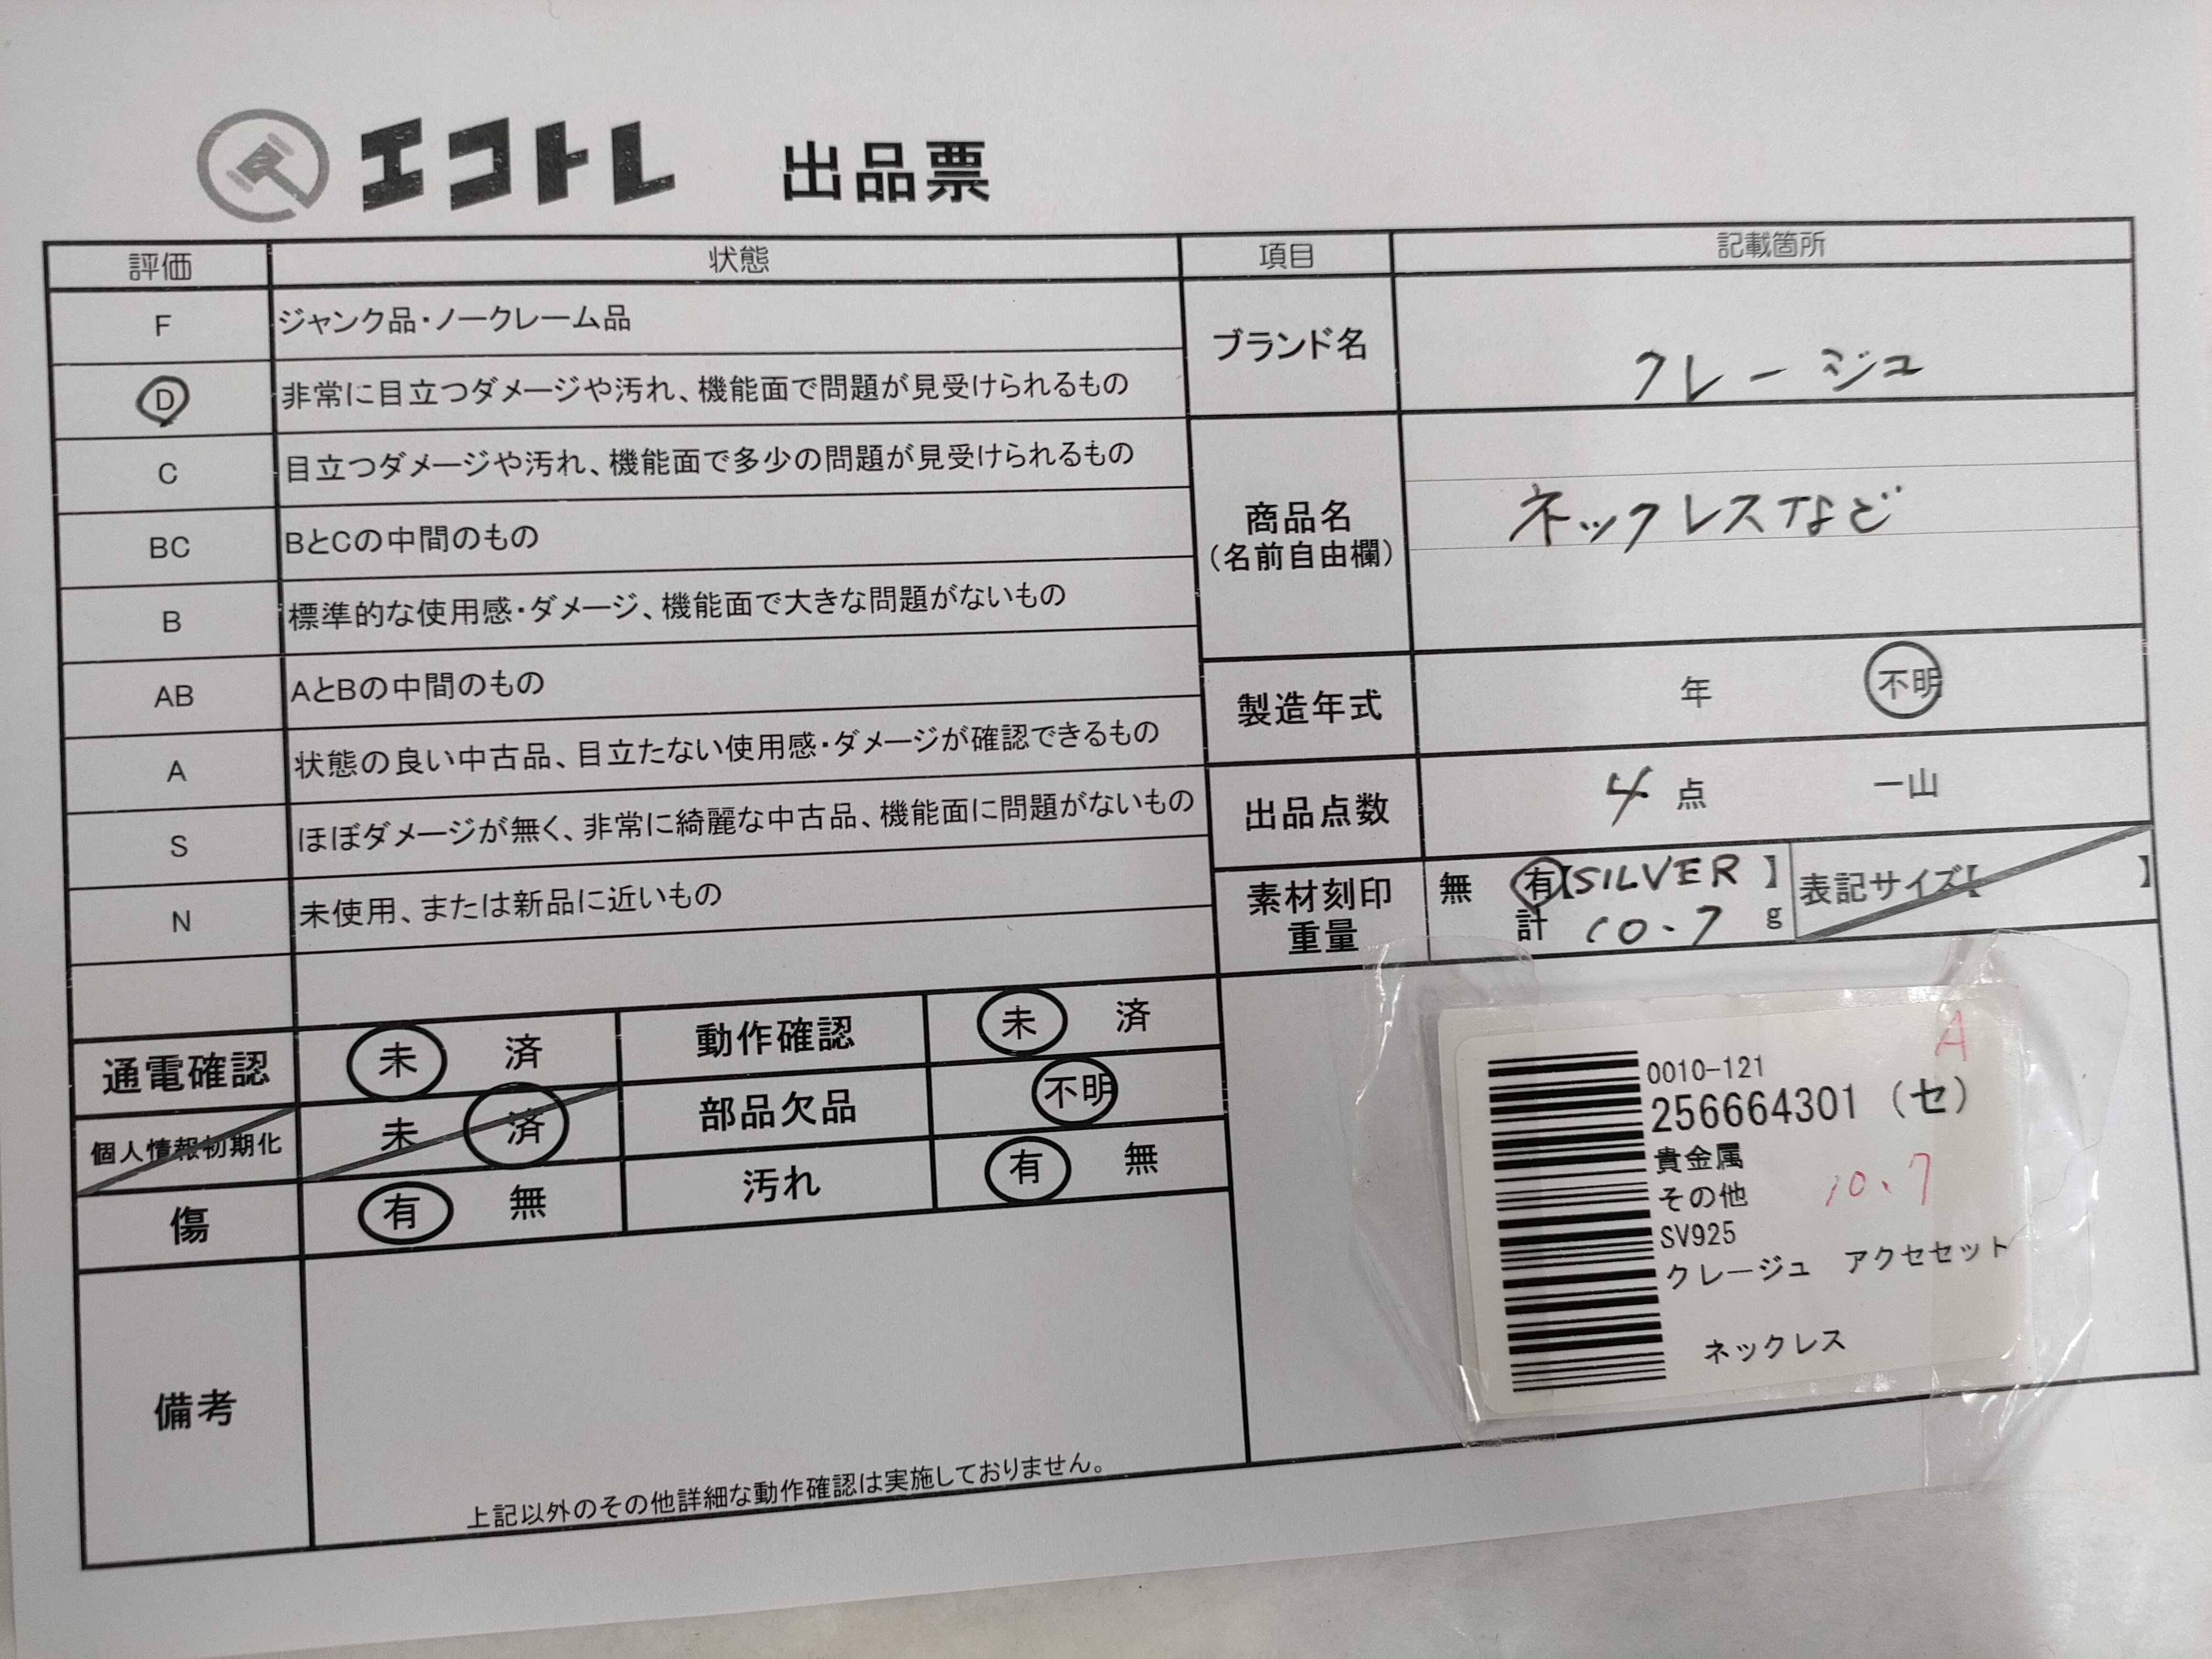 エコトレ 出品票
評価 状態 項目 記載箇所
F ジャンク品・ノークレーム品
D 非常に目立つダメージや汚れ、機能面で問題が見受けられるもの
C 目立つダメージや汚れ、機能面で多少の問題が見受けられるもの
BC BとCの中間のもの
B 標準的な使用感・ダメージ、機能面で大きな問題がないもの
AB AとBの中間のもの
A 状態の良い中古品、目立たない使用感・ダメージが確認できるもの
S ほぼダメージが無く、非常に綺麗な中古品、機能面に問題がないもの
N 未使用、または新品に近いもの
ブランド名 クレージュ
商品名 ネックレスなど
(名前自由欄)
製造年式 年 不明
出品点数 4 点 一山
素材刻印 無 有【SILVER】 表記サイズ【 】
重量 計 10.7 g
通電確認 未 済 動作確認 未 済
個人情報初期化 未 済 部品欠品 不明
傷 有 無 汚れ 有 無
備考
上記以外のその他詳細な動作確認は実施しておりません。
A
0010-121
256664301 (セ)
貴金属
その他 10.7
SV925
クレージュ アクセセット
ネックレス